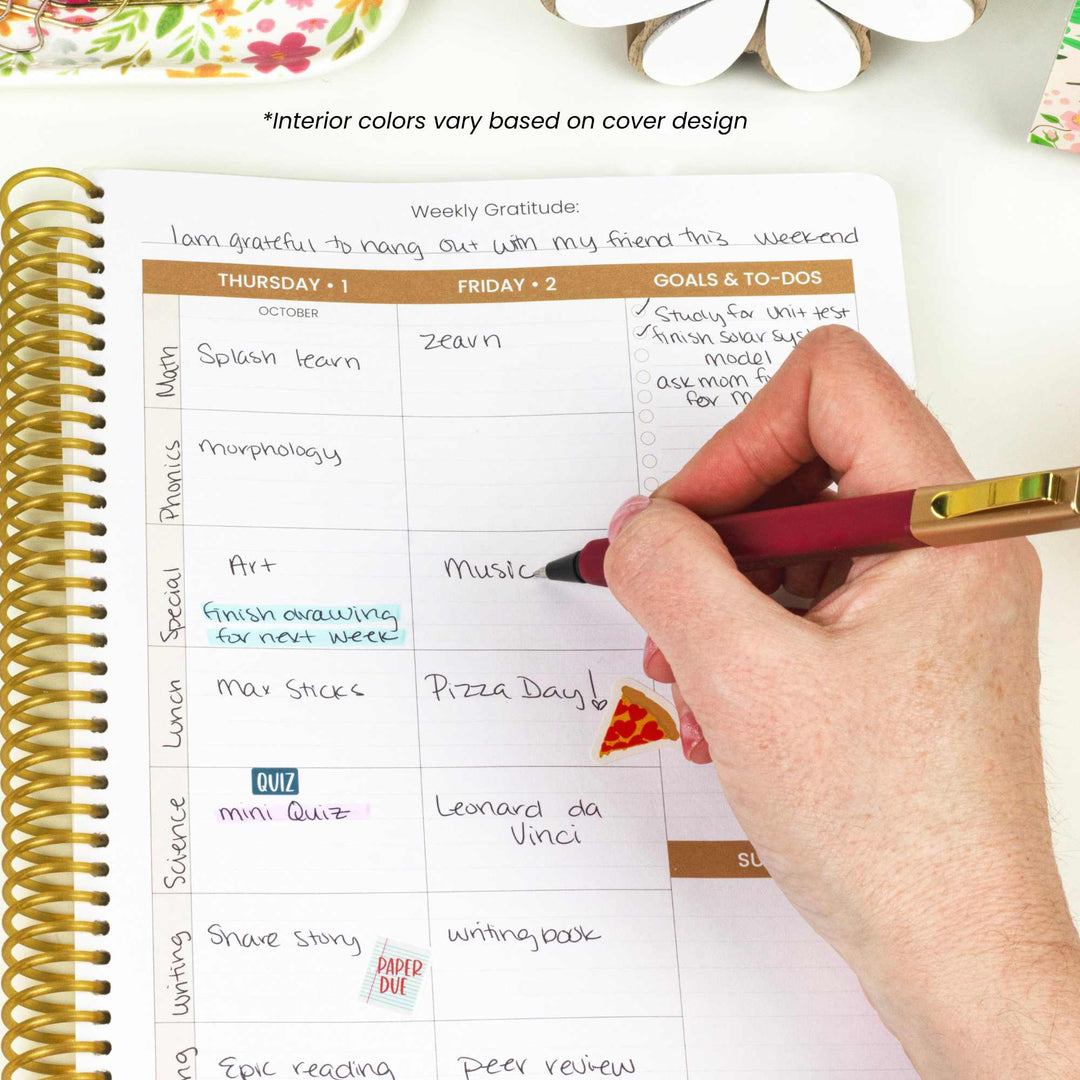 *Interior colors vary based on cover design
Weekly Gratitude:
I am grateful to hang out with my friend this weekend
THURSDAY • 1
FRIDAY • 2
GOALS & TO-DOS
OCTOBER
Study for Unit test
finish solar
model
ask mom
for
Math
Splash learn
Zearn
Phonics
morphology
Special
Art
Music
finish drawing
for next week
Lunch
Max Sticks
Pizza Day!
Science
QUIZ
mini Quiz
Leonard da
Vinci
Writing
Share story
writing book
PAPER
DUE
Epic reading
peer review